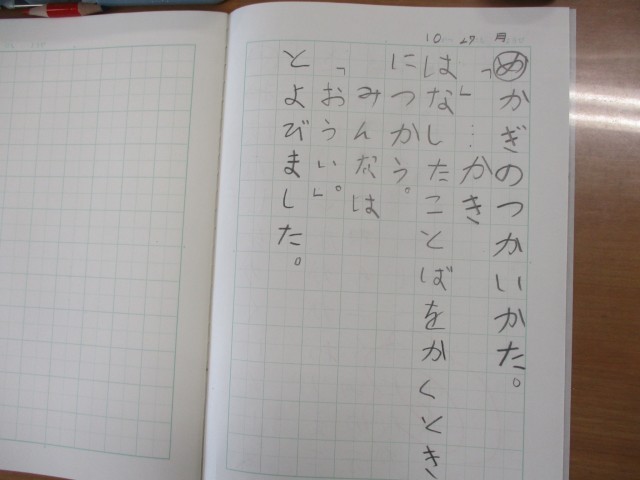 10 27 月
めかぎのつかいかた。
「」…かき
はなしたことばをかくとき
につかう。
みんなは
「おうい。」
とよびました。